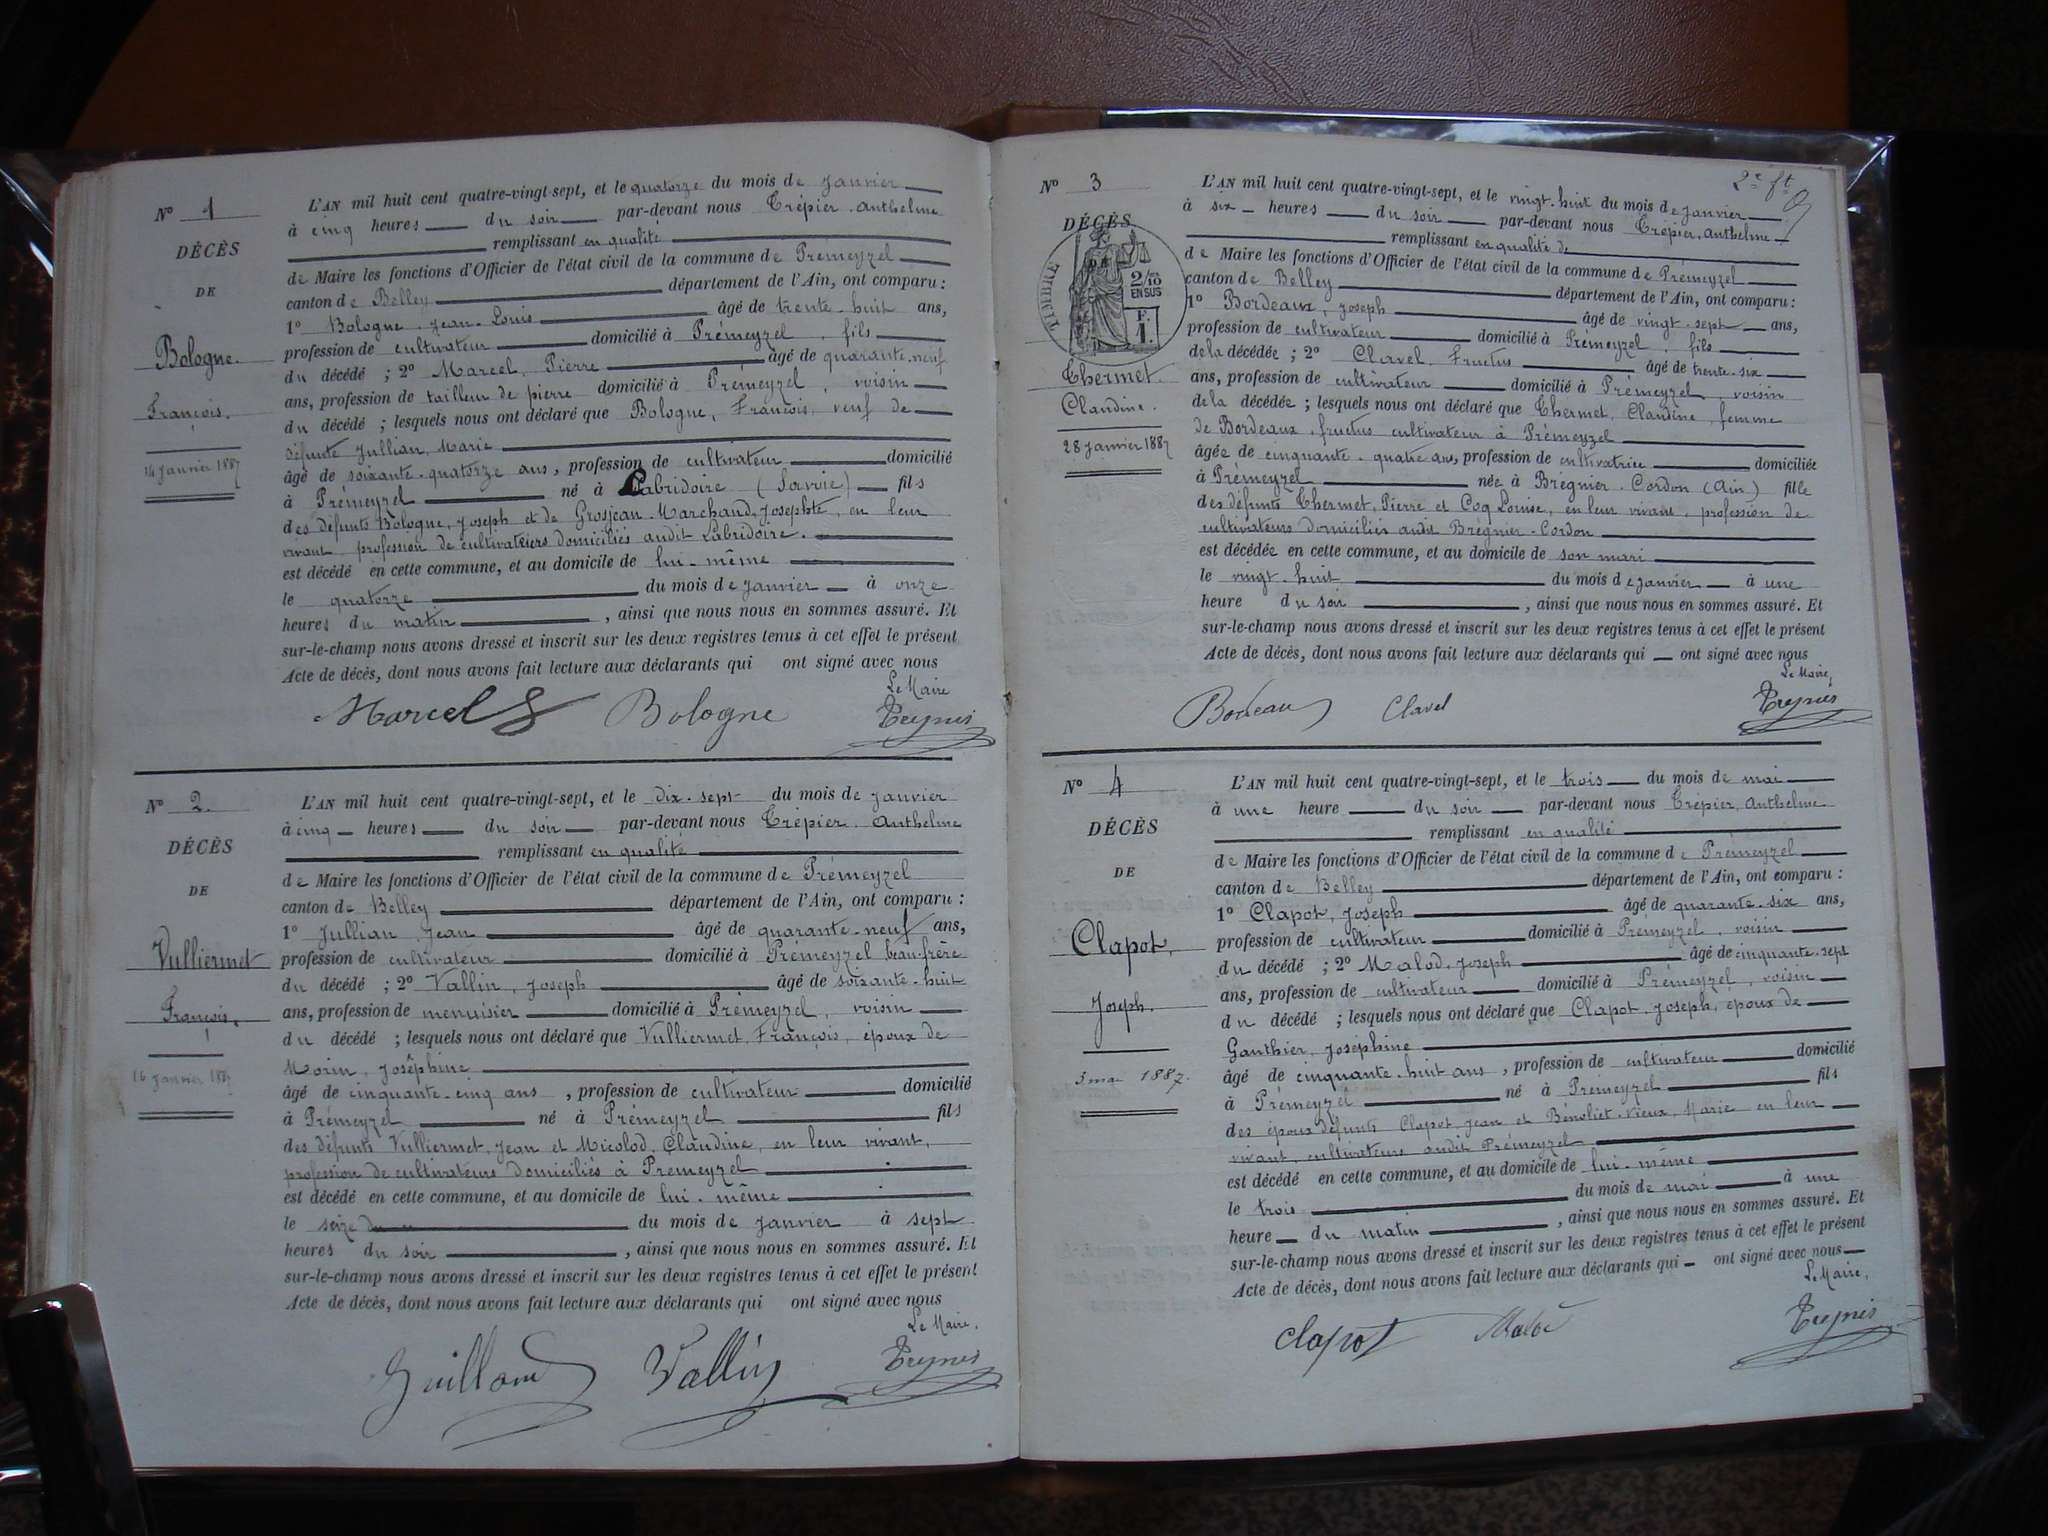 N° 1
DÉCÈS
DE
Bologne.
François.
14 Janvier 1887
L'AN mil huit cent quatre-vingt-sept, et le quatorze du mois de Janvier
à cinq heures du soir par-devant nous Trépier Anthelme
remplissant en qualité
de Maire les fonctions d'Officier de l'état civil de la commune de Prémeyzel
canton de Belley département de l'Ain, ont comparu :
1° Bologne Jean-Louis âgé de trente-huit ans,
profession de cultivateur domicilié à Prémeyzel, fils
du décédé ; 2° Marcel, Pierre âgé de quarante-neuf
ans, profession de tailleur de pierre domicilié à Prémeyzel, voisin
du décédé ; lesquels nous ont déclaré que Bologne, François, veuf de
défunte Jullian, Marie
âgé de soixante-quatorze ans, profession de cultivateur domicilié
à Prémeyzel né à Labridoire (Savoie) fils
des défunts Bologne, Joseph et de Grosjean-Marchand, Josephte, en leur
vivant, profession de cultivateurs domiciliés audit Labridoire.
est décédé en cette commune, et au domicile de lui-même
le quatorze du mois de Janvier à onze
heures du matin, ainsi que nous nous en sommes assuré. Et
sur-le-champ nous avons dressé et inscrit sur les deux registres tenus à cet effet le présent
Acte de décès, dont nous avons fait lecture aux déclarants qui ont signé avec nous
Le Maire
Marcel Bologne
N° 2.
DÉCÈS
DE
Vulliermet
François.
16 Janvier 1887
L'AN mil huit cent quatre-vingt-sept, et le dix-sept du mois de Janvier
à cinq heures du soir par-devant nous Trépier Anthelme
remplissant en qualité
de Maire les fonctions d'Officier de l'état civil de la commune de Prémeyzel
canton de Belley département de l'Ain, ont comparu :
1° Jullian Jean âgé de quarante-neuf ans,
profession de cultivateur domicilié à Prémeyzel beau-frère
du décédé ; 2° Vallin, Joseph âgé de soixante-huit
ans, profession de menuisier domicilié à Prémeyzel, voisin
du décédé ; lesquels nous ont déclaré que Vulliermet, François, époux de
Morin, Joséphine
âgé de cinquante-cinq ans, profession de cultivateur domicilié
à Prémeyzel né à Prémeyzel fils
des défunts Vulliermet, Jean et Micolod, Claudine, en leur vivant,
profession de cultivateurs domiciliés à Prémeyzel
est décédé en cette commune, et au domicile de lui-même
le seize du mois de Janvier à sept
heures du soir, ainsi que nous nous en sommes assuré. Et
sur-le-champ nous avons dressé et inscrit sur les deux registres tenus à cet effet le présent
Acte de décès, dont nous avons fait lecture aux déclarants qui ont signé avec nous
Le Maire,
Vallin
2e ft
N° 3
DÉCÈS
TIMBRE
2/10
EN SUS
F.
1.
Thermet.
Claudine.
28 Janvier 1887
L'AN mil huit cent quatre-vingt-sept, et le vingt-huit du mois de Janvier
à six heures du soir par-devant nous Trépier, Anthelme
remplissant en qualité de
de Maire les fonctions d'Officier de l'état civil de la commune de Prémeyzel
canton de Belley département de l'Ain, ont comparu :
1° Bordeaux, Joseph âgé de vingt-sept ans,
profession de cultivateur domicilié à Prémeyzel, fils
de la décédée ; 2° Clavel, Fructus âgé de trente-six
ans, profession de cultivateur domicilié à Prémeyzel, voisin
de la décédée ; lesquels nous ont déclaré que Thermet, Claudine, femme
de Bordeaux, fructus cultivateur à Prémeyzel
âgée de cinquante-quatre ans, profession de cultivatrice domiciliée
à Prémeyzel née à Brégnier-Cordon (Ain) fille
des défunts Thermet, Pierre et Coq Louise, en leur vivant, profession de
cultivateurs domiciliés audit Brégnier-Cordon
est décédée en cette commune, et au domicile de son mari
le vingt-huit du mois de Janvier à une
heure du soir, ainsi que nous nous en sommes assuré. Et
sur-le-champ nous avons dressé et inscrit sur les deux registres tenus à cet effet le présent
Acte de décès, dont nous avons fait lecture aux déclarants qui ont signé avec nous
Le Maire,
Clavel
N° 4
DÉCÈS
DE
Clapot,
Joseph.
3 mai 1887.
L'AN mil huit cent quatre-vingt-sept, et le trois du mois de mai
à une heure du soir par-devant nous Trépier, Anthelme
remplissant en qualité
de Maire les fonctions d'Officier de l'état civil de la commune de Prémeyzel
canton de Belley département de l'Ain, ont comparu :
1° Clapot, Joseph âgé de quarante-six ans,
profession de cultivateur domicilié à Prémeyzel, voisin
du décédé ; 2° Malod, Joseph âgé de cinquante-sept
ans, profession de cultivateur domicilié à Prémeyzel, voisin
du décédé ; lesquels nous ont déclaré que Clapot, Joseph, époux de
Gauthier, Joséphine
âgé de cinquante-huit ans, profession de cultivateur domicilié
à Prémeyzel né à Prémeyzel fils
des époux défunts Clapot, Jean et Bénoliet-Vieux, Marie en leur
vivant, cultivateurs audit Prémeyzel
est décédé en cette commune, et au domicile de lui-même
le trois du mois de mai à une
heure du matin, ainsi que nous nous en sommes assuré. Et
sur-le-champ nous avons dressé et inscrit sur les deux registres tenus à cet effet le présent
Acte de décès, dont nous avons fait lecture aux déclarants qui ont signé avec nous
Le Maire,
Clapot